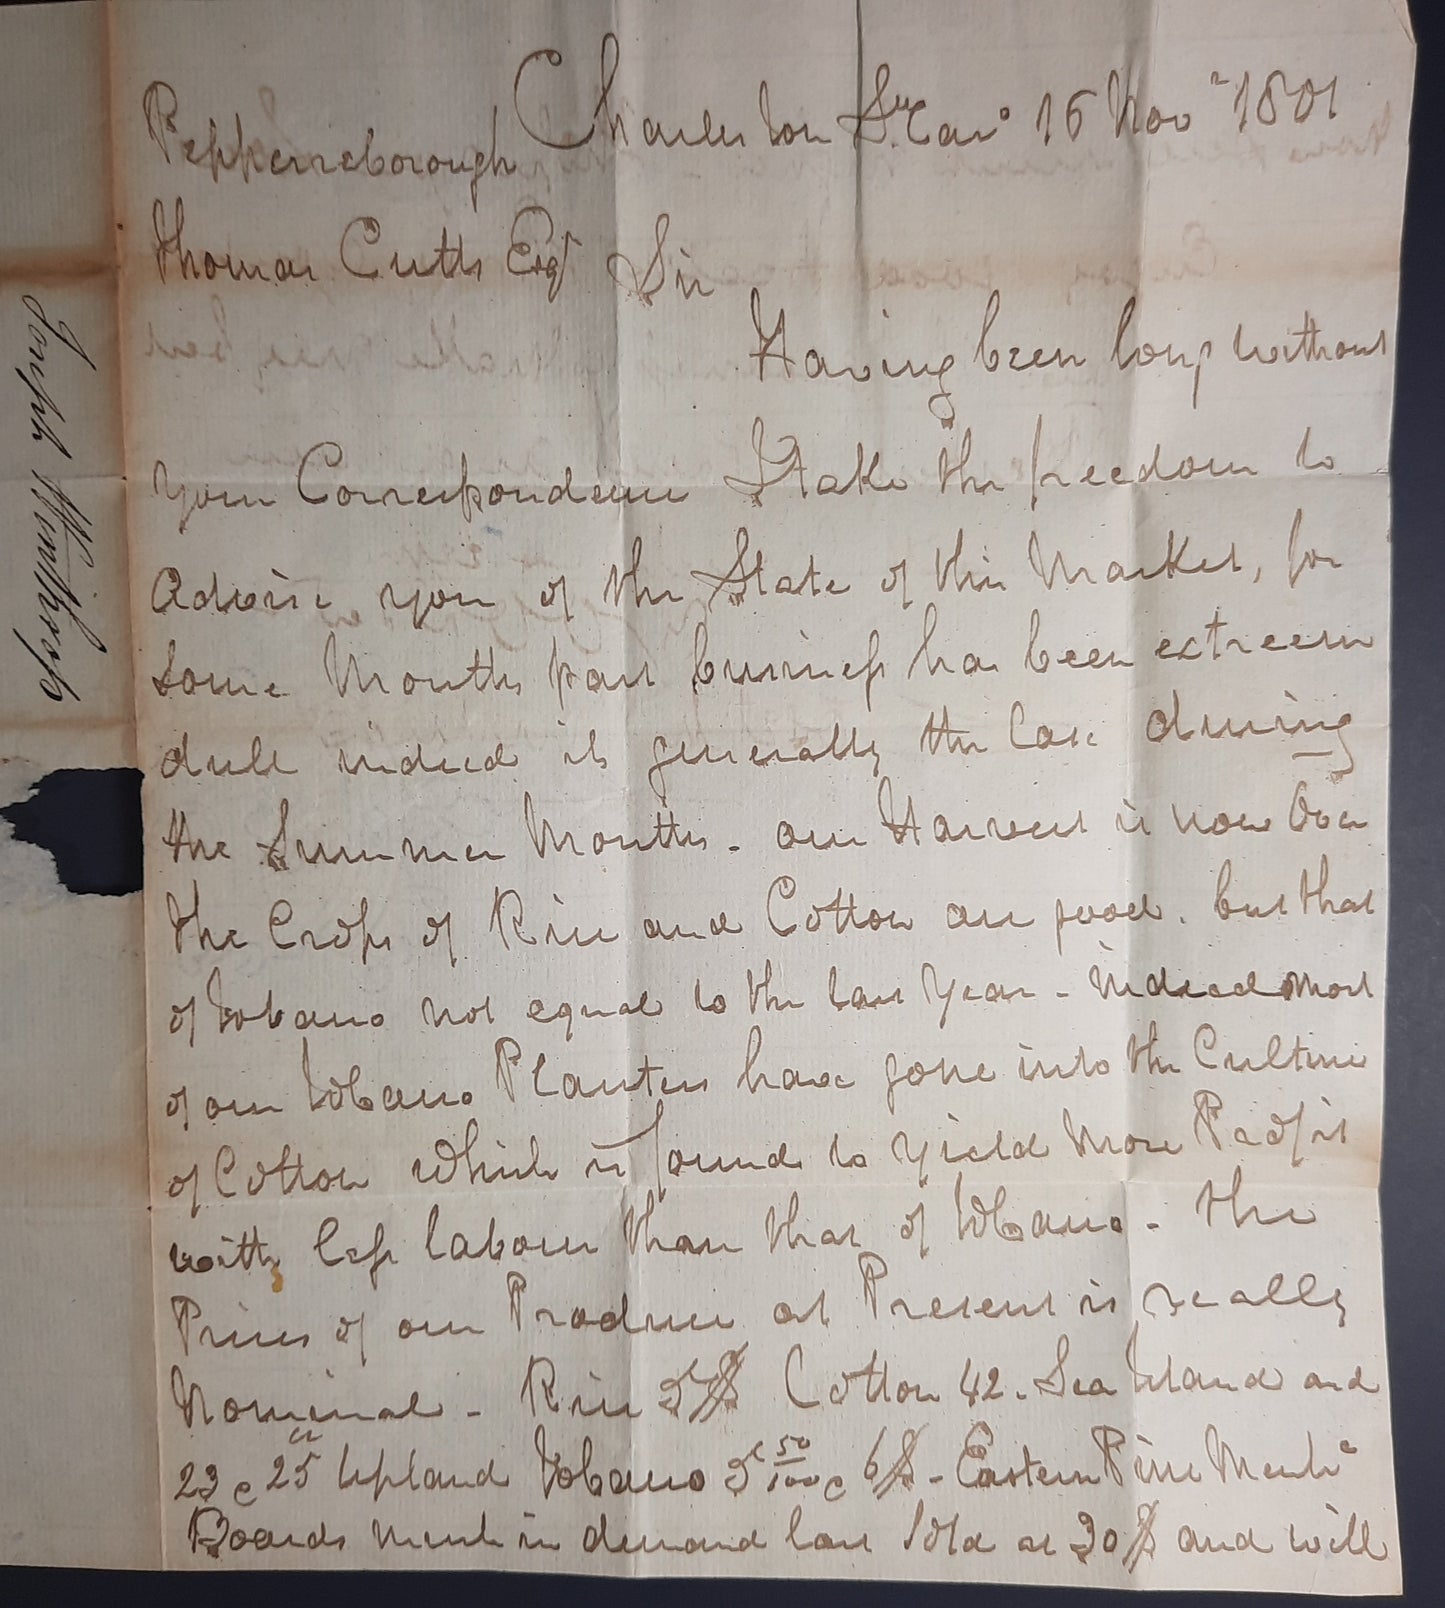 Charleston So Caro 16 Novr 1801
Pepperreborough
Thomas Cutts Esqr Sir
Having been long without
your Correspondence I take the freedom to
Advise you of the State of this Market, for
some Months past business has been extreem
dull indeed it generally the Case during
the Summer Months - our Harvest is now Over
the Crops of Rice and Cotton are good. but that
of Tobacco not equal to the last Year - indeed most
of our Tobacco Planters have gone into the Culture
of Cotton which is found to yield More Profit
with less labour than that of Tobacco - the
Prices of our Produce at Present is really
Nominal - Rice 5$ Cotton 42. Sea Island and
23 a 25 cts Upland Tobacco 5 50/100 a 6$ - Eastern Pine Merche
Boards much in demand last Sold at 30$ and will
Joseph Winthrop